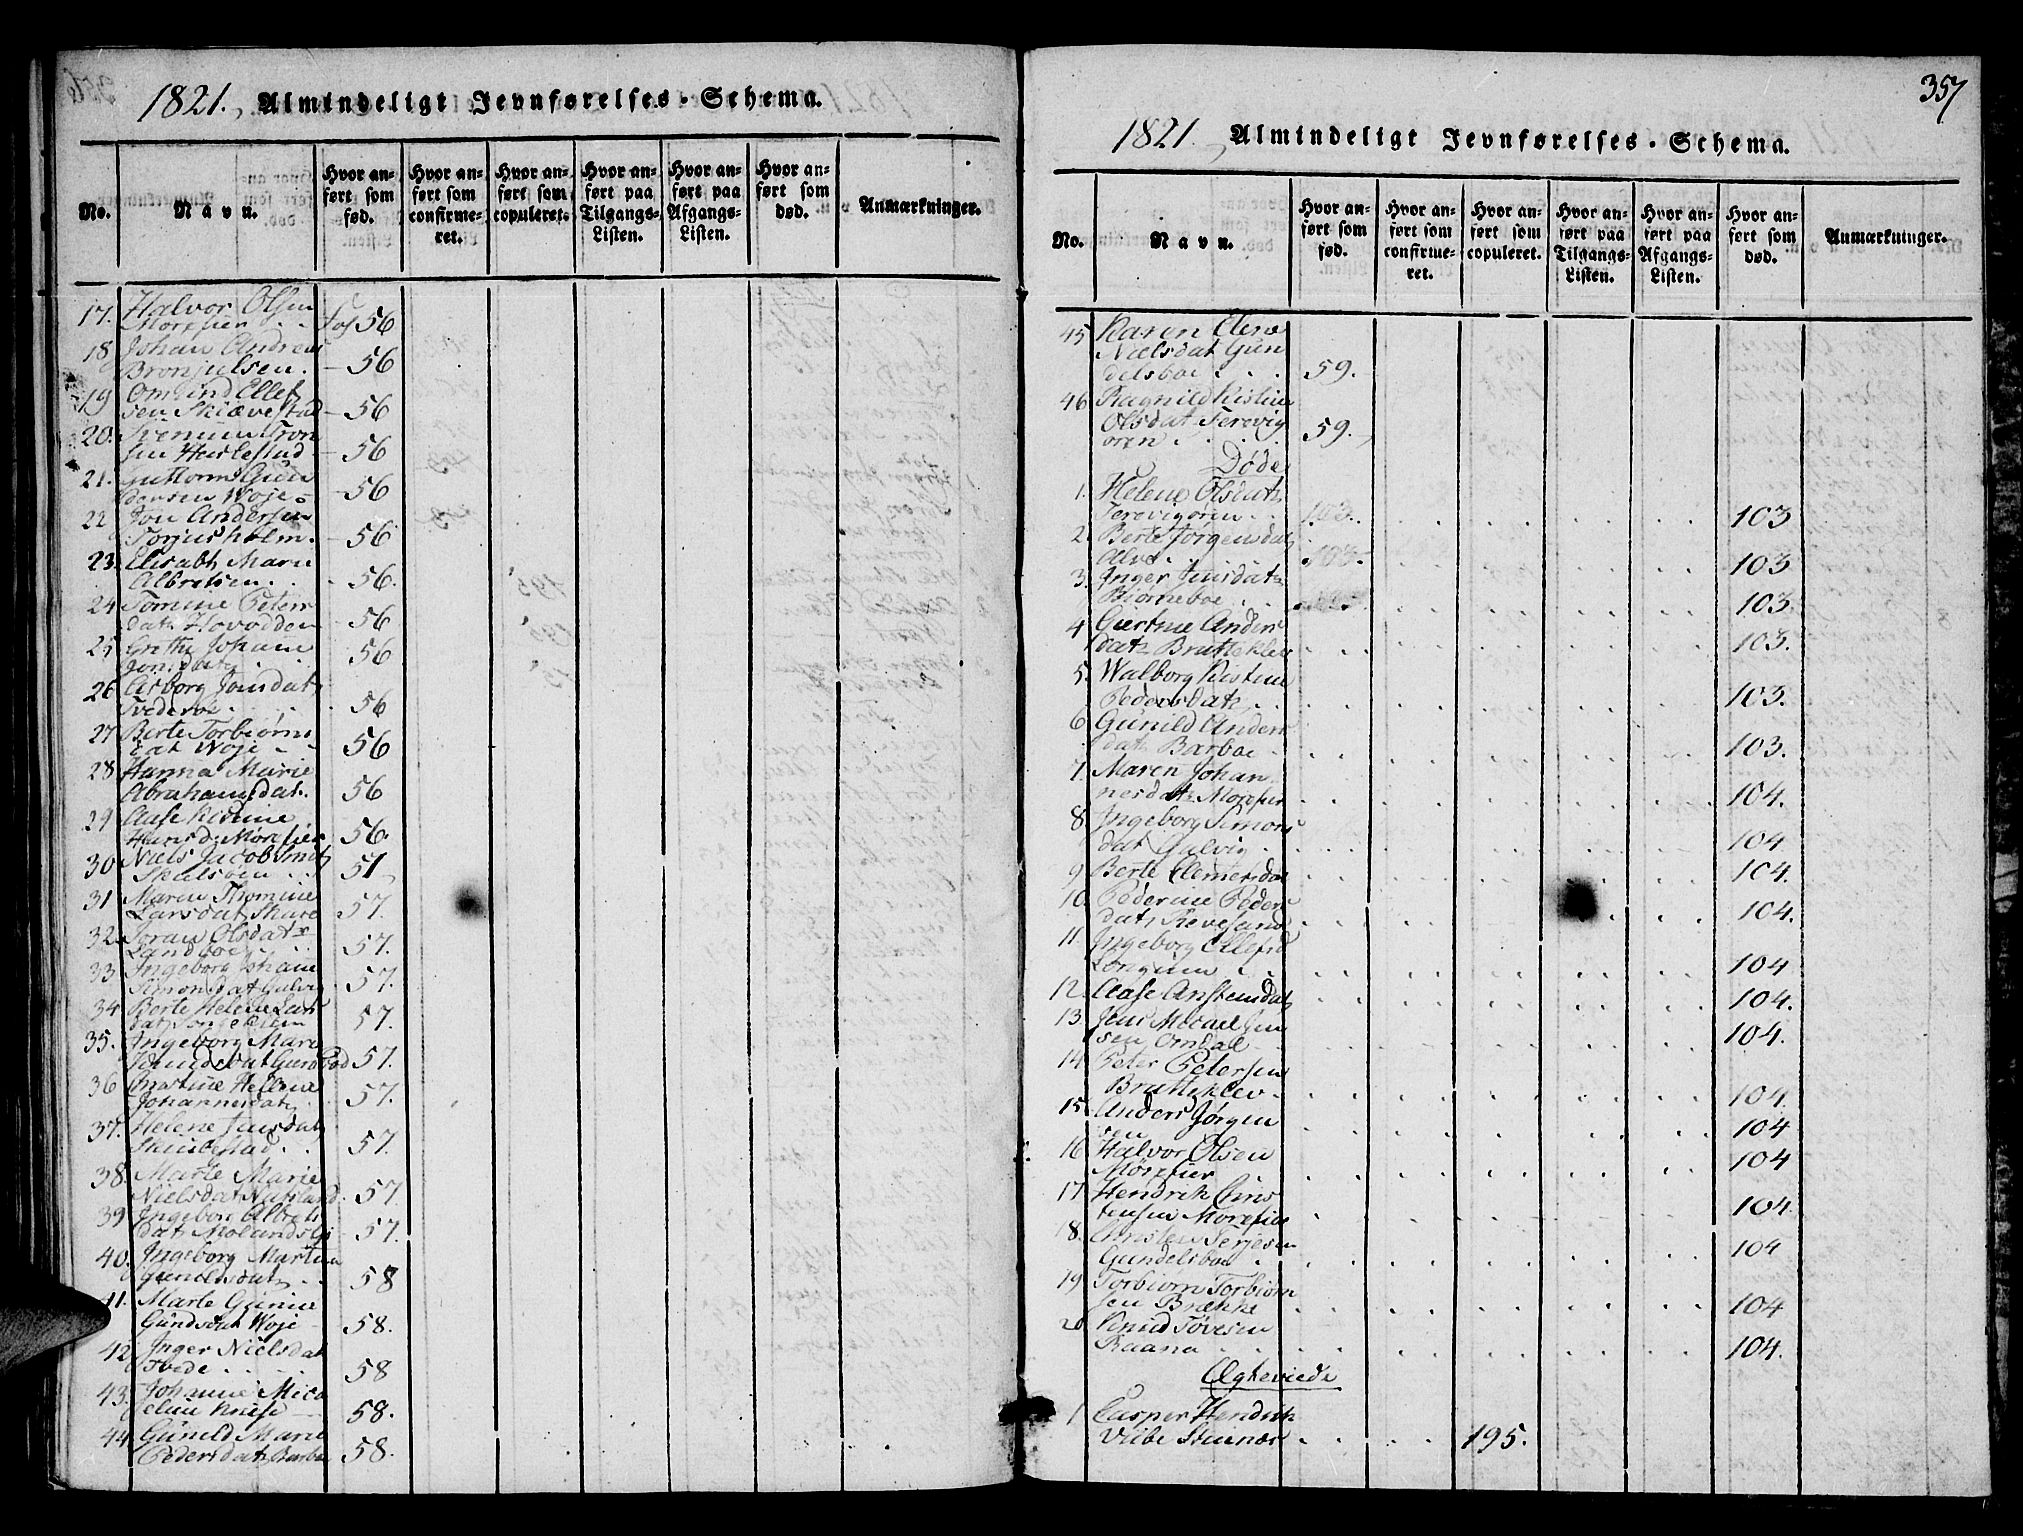 1821. Almindeligt Jevnførelses-Schema.
No.
Navn.
Hvor anført som fød.
Hvor anført som confirmeret.
Hvor anført som copuleret.
Hvor anført paa Tilgangs-Listen.
Hvor anført paa Afgangs-Listen.
Hvor anført som død.
Anmærkninger.
17. Halvor Olsen
Morefier . . fol 56
18 Johan Andreas
Bronjulsen. 56
19 Omund Ellef
sen Skiævestad 56
20.
sen 56
21. Guttorm Gun
dersen Woje 56
22 Jon Andersen
Torjusholm. 56
23. Elisabth Marie
Albretsen. . 56.
24 Tomine Peters
dat. Hovodden 56
25 Grethe Johane
Jensdat. 56
26 Asborg Jensdat.
56
27 Berte Torbiørns
dat Woje 56
28 Hanna Marie
Abrahamsdat. 56
29 Aase
Hansd. Morefier 56.
30 Niels Jacob
57
31 Maren Thomine
Larsdat. 57.
32. Joran Olsdat.
Landboe 57.
33 Ingeborg Johane
Simonsdat Gulvig 57.
34 Berte Helene Lars
dat. 57.
35. Ingeborg Marie
57.
36 Hellene
Johannesdat. 57.
37. Helene Jensdat.
57.
38. Marte Marie
Nielsdat 57.
39 Ingeborg Albrets
dat. Molands 57.
40. Ingeborg Martine
58
41. Marte Gunie
Woje 58.
42 Inger Nielsdat
58
43. Johanne Mico
58.
44 Gunild Marie
Pedersdat. Barboe 58.
357
1821. Almindeligt Jevnførelses-Schema.
No.
Navn.
Hvor anført som fød.
Hvor anført som confirmeret.
Hvor anført som copuleret.
Hvor anført paa Tilgangs-Listen.
Hvor anført paa Afgangs-Listen.
Hvor anført som død.
Anmærkninger.
45 Karen Elene
Nielsdat Gun
delsboe . . . 59.
46 Ragnild Kistine
Olsdat Terevig
oren . . . 59.
Døde
1. Helene Olsdat.
Terevigoren . . 103
2. Berte Jorgensdat.
103
3. Inger Jensdat.
Biorneboe . . 103.
4 Giertrue Anders
dat. Bratteklev 103.
5. Walborg Kistine
Pedersdat. 103.
6 Gunild Anders
dat. Barboe 103.
7. Maren Johan
nesdat. Morefier 104.
8. Ingeborg Simons
dat Gulvig . 104
9 Berte Clemetsdat 104.
10. Pederine Peders
dat. Revesand 104.
11. Ingeborg Ellefsd.
Longum 104
12. Aase Anstensdat. 104.
13. Jens Micael Jen
sen Omdal 104.
14 Peter Petersen
Bratteklev. 104.
15. Anders Jørgen
sen 104
16 Halvor Olsen
Mørefier 104
17 Hendrik Chris
tensen Morefier 104.
18. Christen Terjesen
Gundelsboe . 104
19 Torbiorn Torbiørn
sen Brække 104
20 Knud Tøvesen
Raana 104.
Ægteviede
1 Casper Hendrik
195.